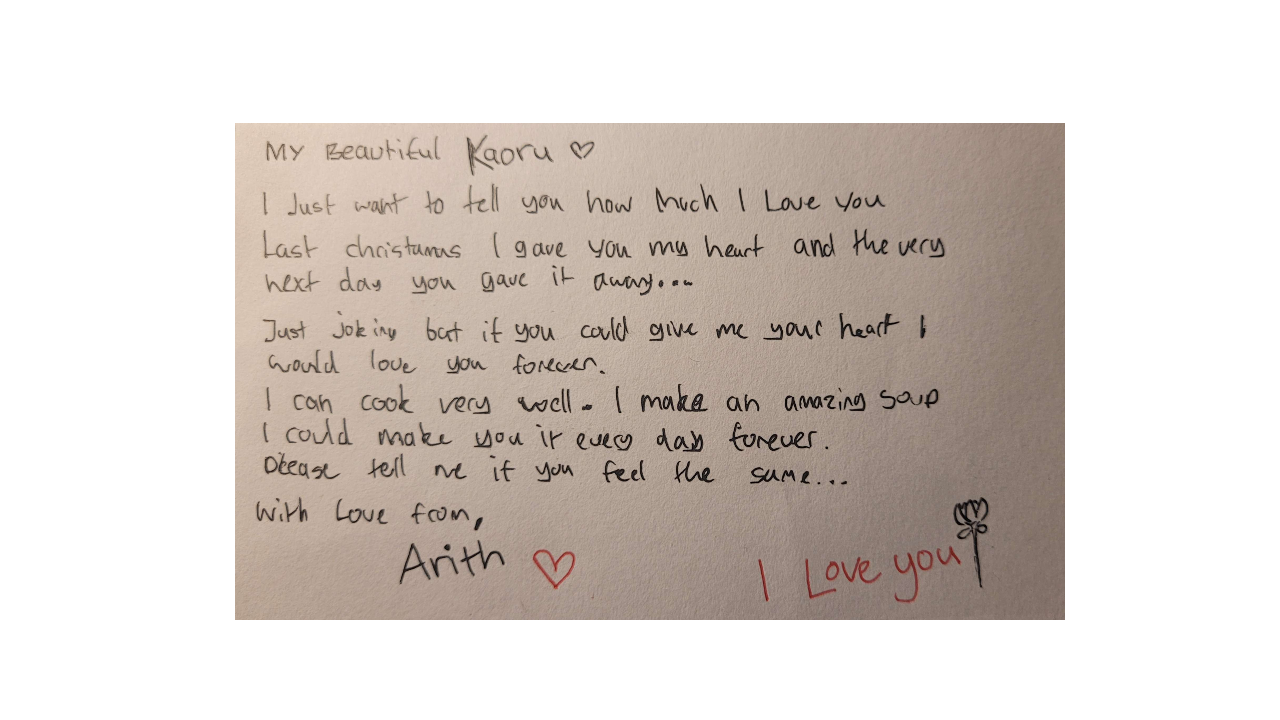 My Beautiful Kaoru ♡
I Just want to tell you how Much I Love You
Last christamas I gave you my heart and the very
next day you gave it away...
Just joking but if you could give me your heart I
would love you forever.
I can cook very well. I make an amazing soup
I could make you it every day forever.
Please tell me if you feel the same...
With Love from,
Arith ♡
I Love you